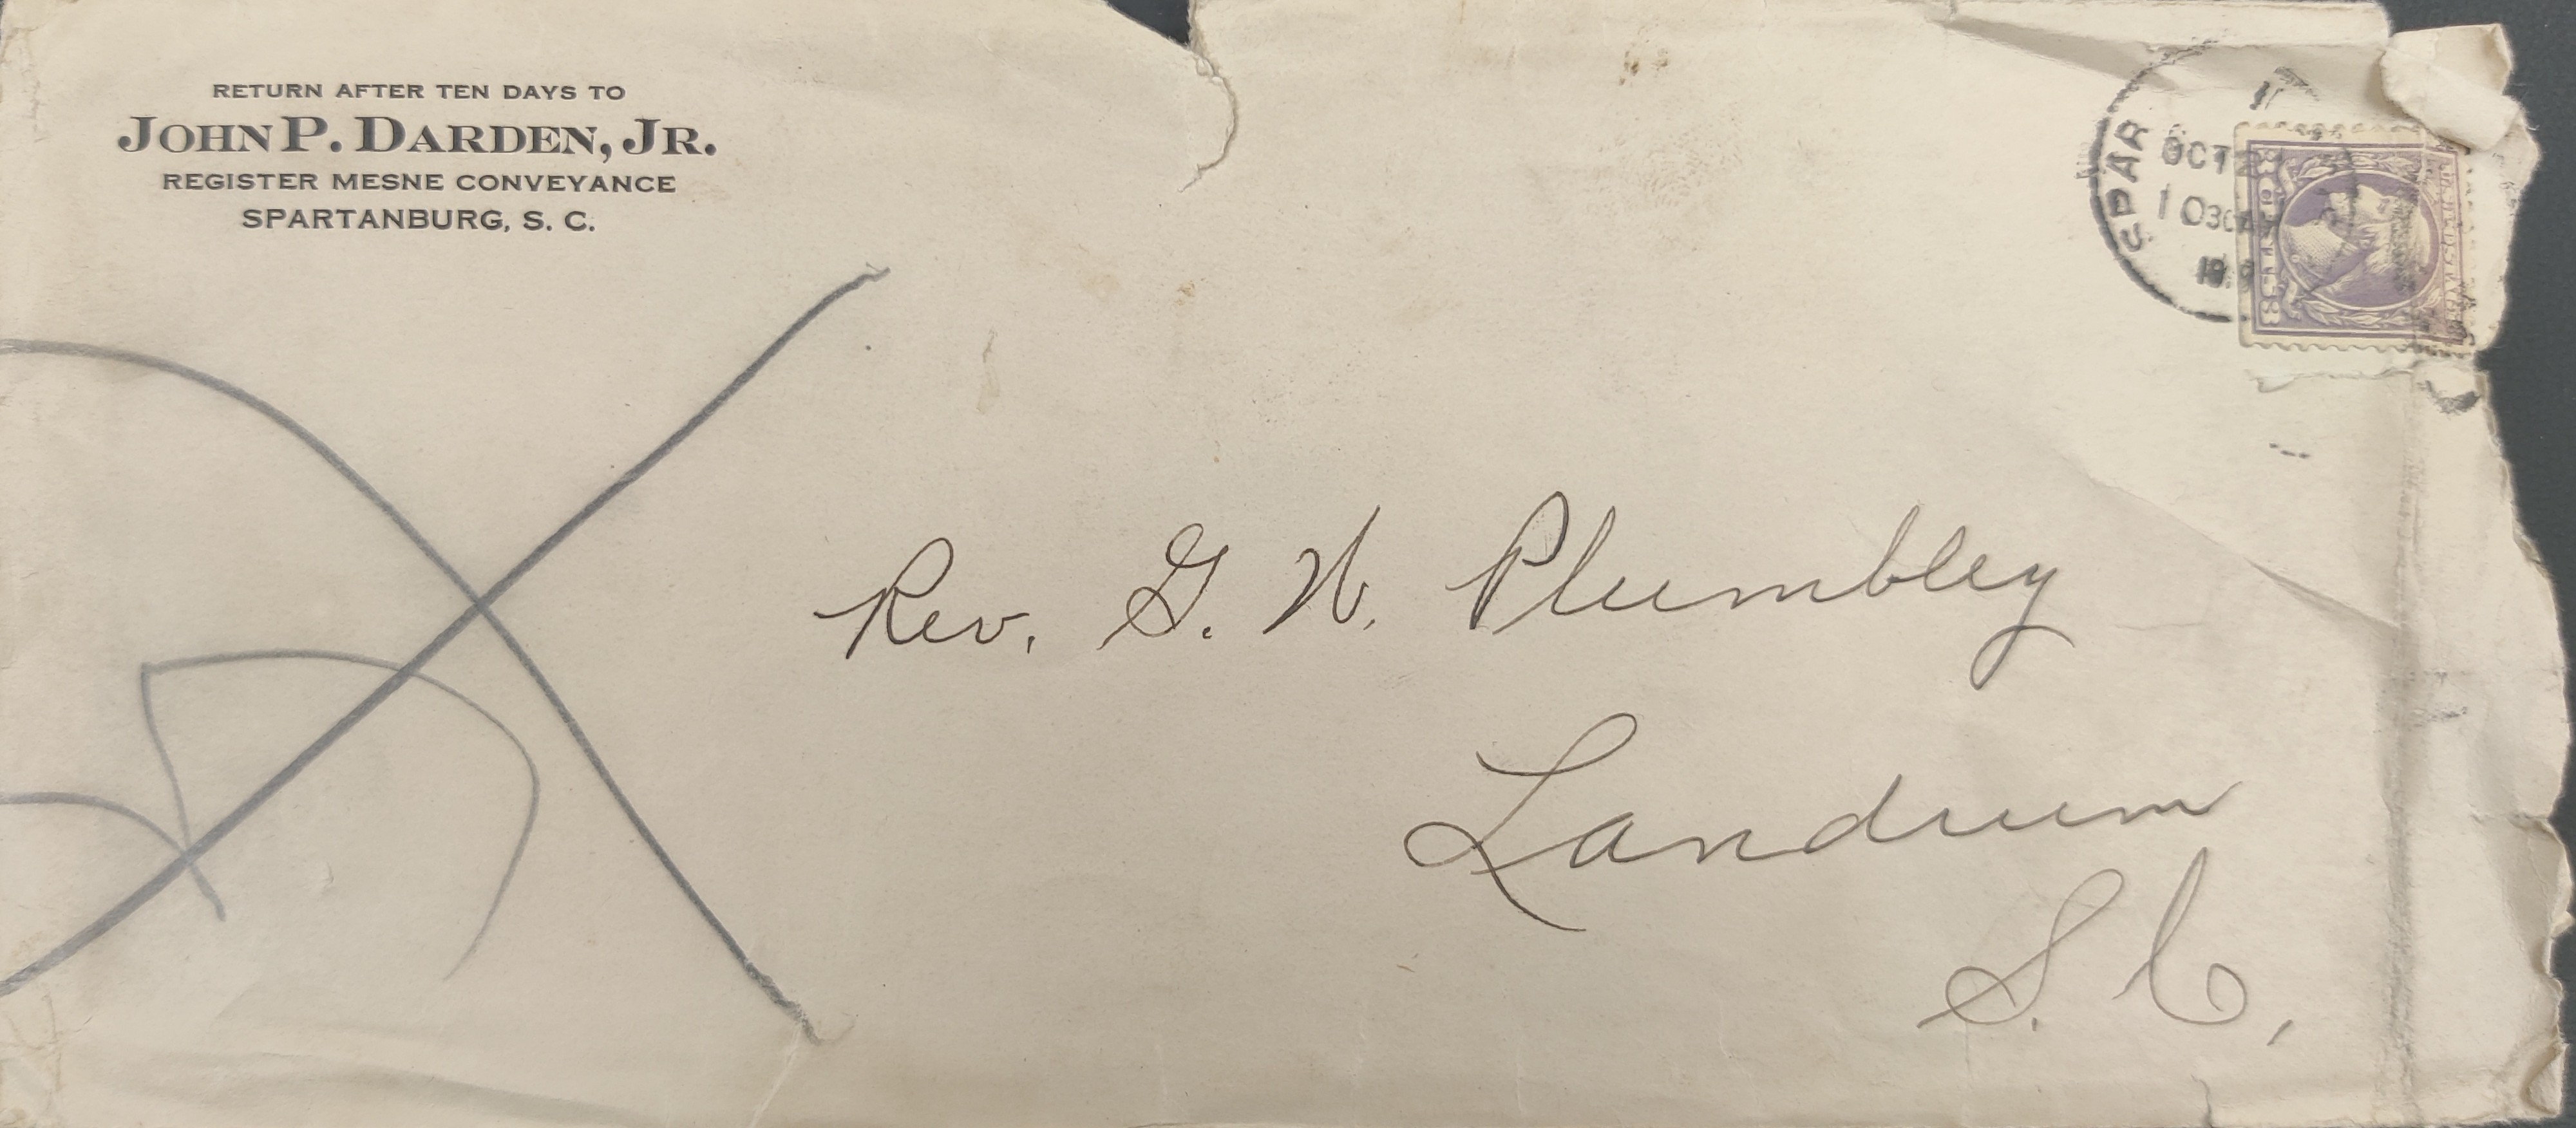 RETURN AFTER TEN DAYS TO
JOHN P. DARDEN, JR.
REGISTER MESNE CONVEYANCE
SPARTANBURG, S. C.
SPAR
OCT
10 30
Rev. G. W. Plumbley
Landrum
S. C.